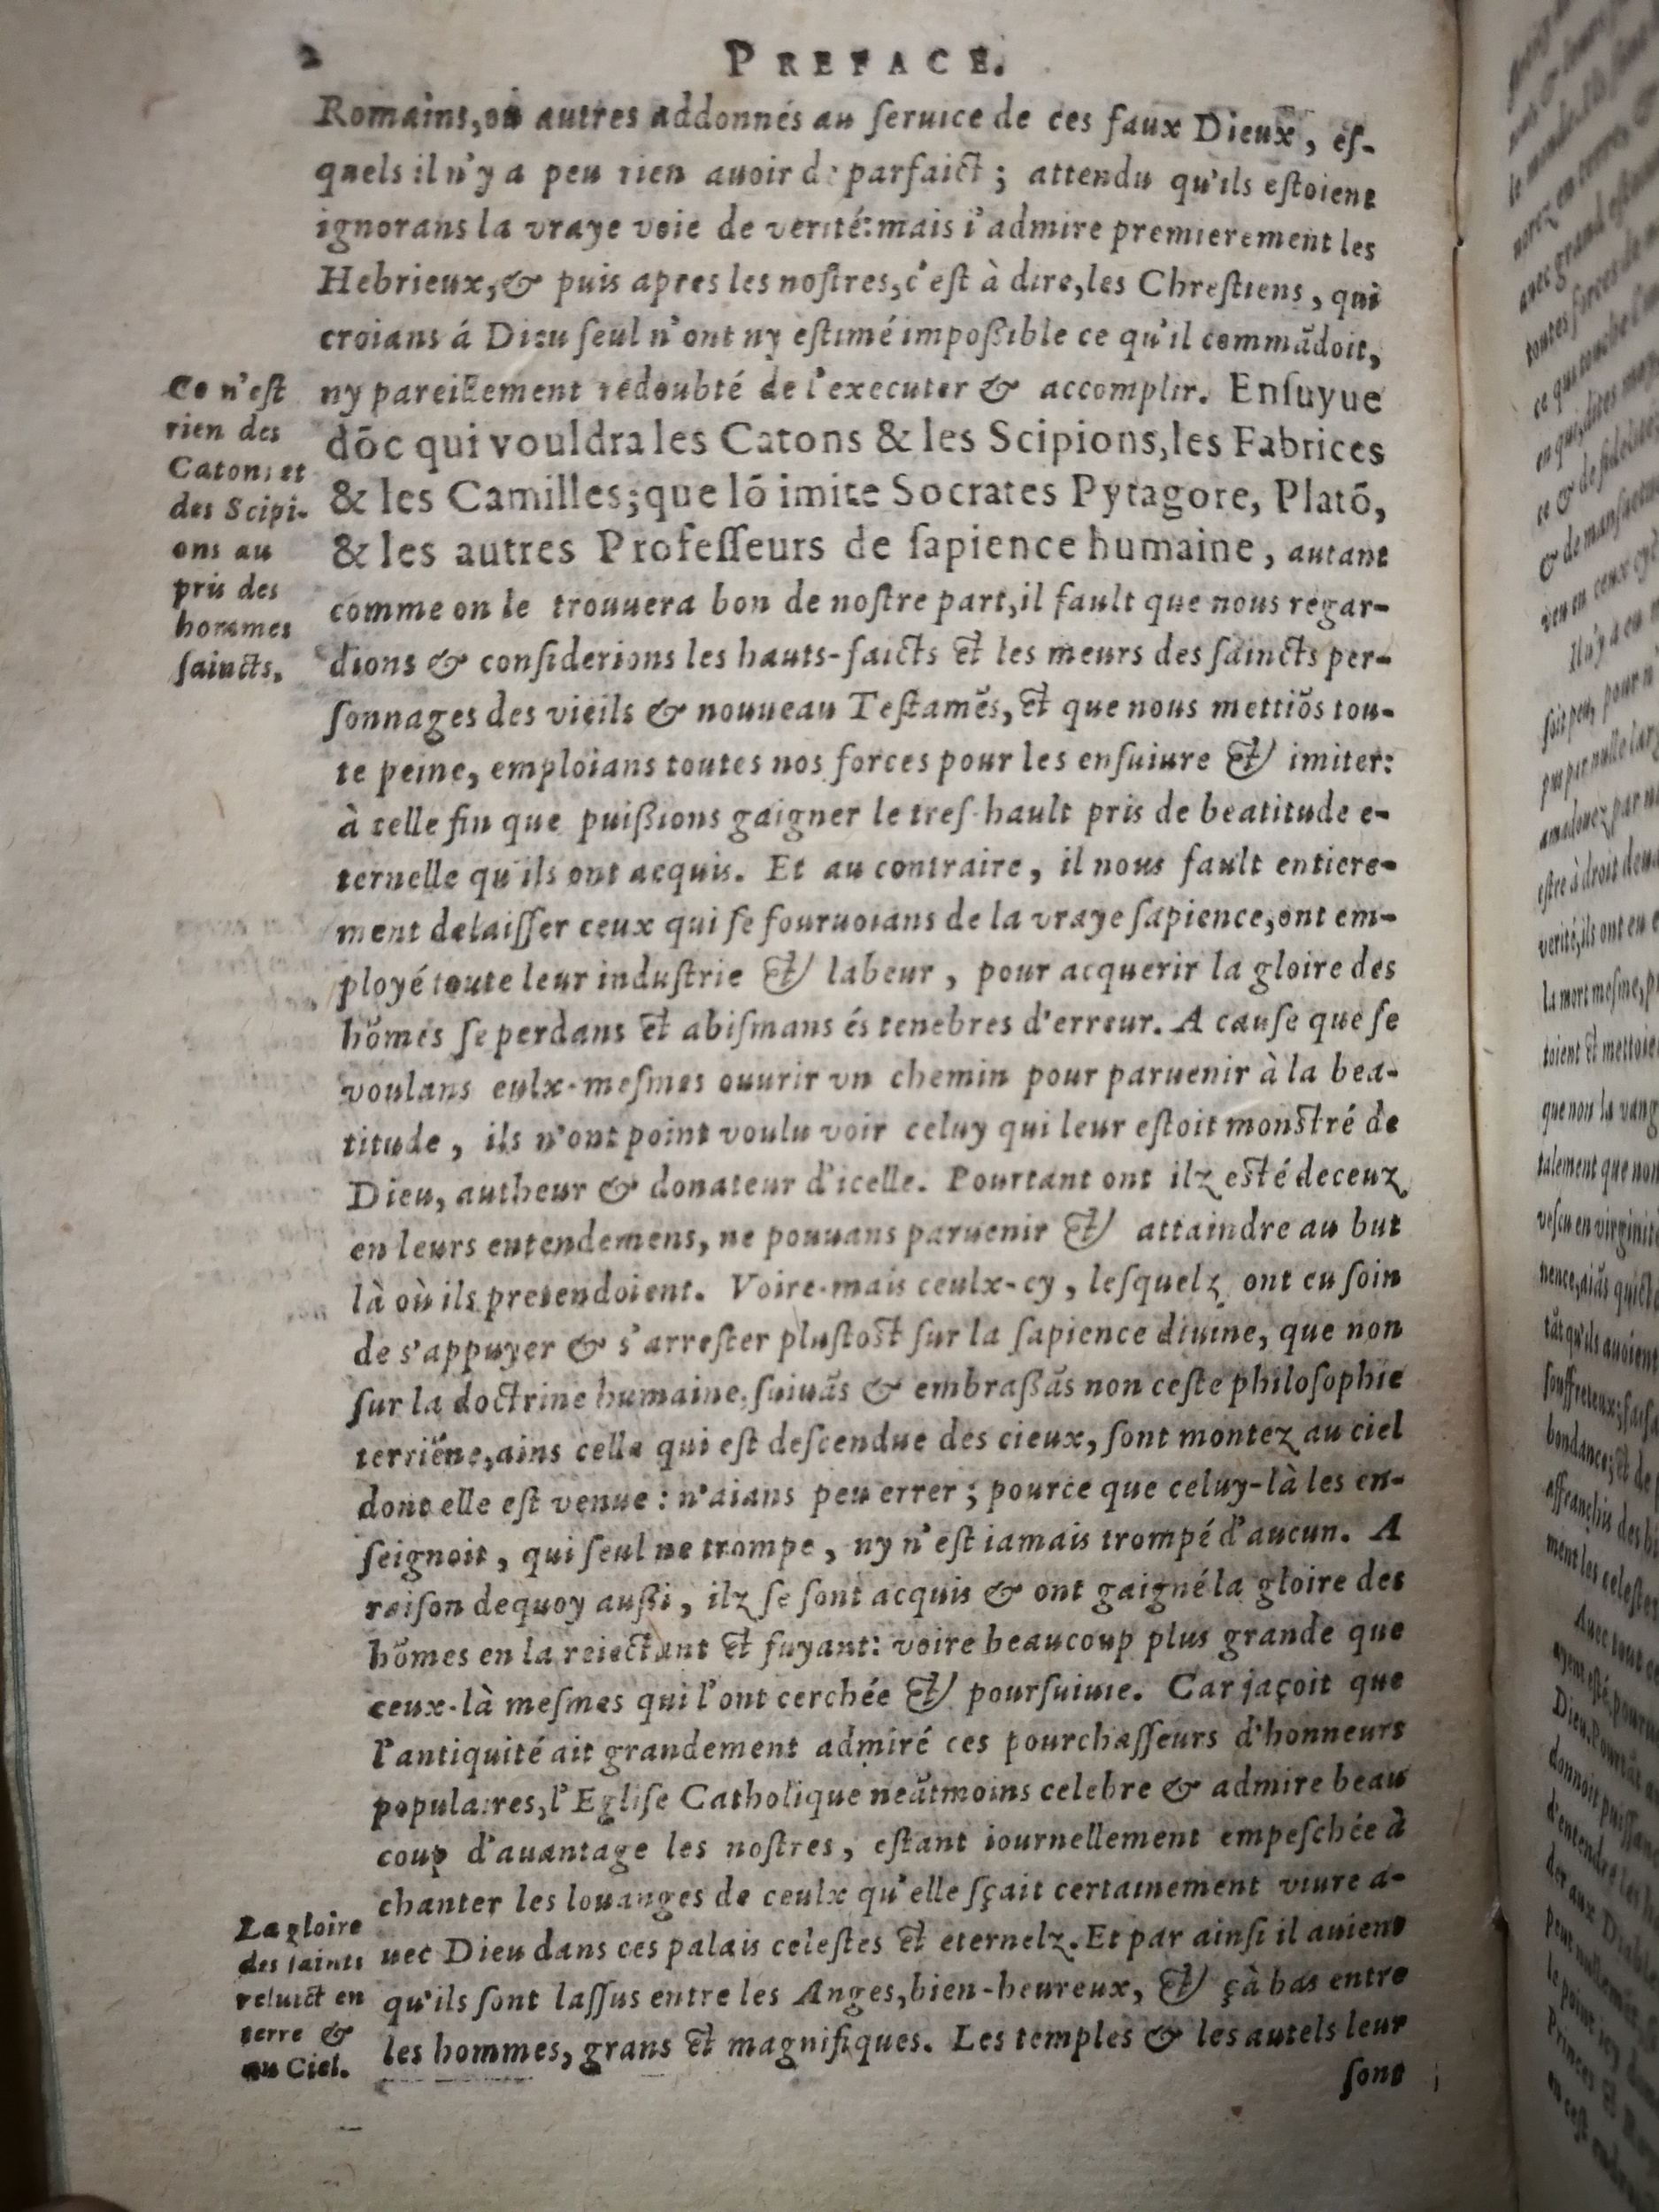 2
PREFACE.
Romains, ou autres addonnés au ſeruice de ces faux Dieux, eſ-
quels il n'y a peu rien auoir de parfaict; attendu qu'ils eſtoient
ignorans la vraye voie de verité: mais i'admire premierement les
Hebrieux, & puis apres les noſtres, c'eſt à dire, les Chreſtiens, qui
croians á Dieu ſeul n'ont ny eſtimé impoßible ce qu'il commãdoit,
Ce n'eſt
rien des
Catons et
des Scipi-
ons au
pris des
hommes
ſaincts.
ny pareillement redoubté de l'executer & accomplir. Enſuyue
dõc qui vouldra les Catons & les Scipions, les Fabrices
& les Camilles; que lõ imite Socrates Pytagore, Platõ,
& les autres Profeſſeurs de ſapience humaine, autant
comme on le trouuera bon de noſtre part, il fault que nous regar-
dions & conſiderions les hauts-faicts et les meurs des ſaincts per-
ſonnages des vieils & nouueau Teſtamẽs, et que nous mettiõs tou-
te peine, emploians toutes nos forces pour les enſuiure et imiter:
à telle fin que puißions gaigner le treſ-hault pris de beatitude e-
ternelle qu'ils ont acquis. Et au contraire, il nous fault entiere-
ment delaiſſer ceux qui ſe fouruoians de la vraye ſapience, ont em-
ployé toute leur induſtrie et labeur, pour acquerir la gloire des
hõmes ſe perdans et abiſmans és tenebres d'erreur. A cauſe que ſe
voulans eulx-meſmes ouurir vn chemin pour paruenir à la bea-
titude, ils n'ont point voulu voir celuy qui leur eſtoit monſtré de
Dieu, autheur & donateur d'icelle. Pourtant ont ilz eſté deceuz
en leurs entendemens, ne pouuans paruenir et attaindre au but
là où ils pretendoient. Voire-mais ceulx-cy, leſquelz ont eu ſoin
de s'appuyer & s'arreſter pluſtoſt ſur la ſapience diuine, que non
ſur la doctrine humaine, ſuiuãs & embraßãs non ceſte philoſophie
terriẽne, ains celle qui eſt deſcendue des cieux, ſont montez au ciel
dont elle eſt venue: n'aians peu errer; pource que celuy-là les en-
ſeignoit, qui ſeul ne trompe, ny n'eſt iamais trompé d'aucun. A
raiſon dequoy außi, ilz ſe ſont acquis & ont gaigné la gloire des
hõmes en la reiectant et fuyant: voire beaucoup plus grande que
ceux-là meſmes qui l'ont cerchée et pourſuiuie. Car jaçoit que
l'antiquité ait grandement admiré ces pourchaſſeurs d'honneurs
populaires, l'Egliſe Catholique neãtmoins celebre & admire beau
coup d'auantage les noſtres, eſtant iournellement empeſchée à
chanter les louanges de ceulx qu'elle ſçait certainement viure a-
La gloire
des ſaints
reluict en
terre &
au Ciel.
uec Dieu dans ces palais celeſtes et eternelz. Et par ainſi il auient
qu'ils ſont laſſus entre les Anges, bien-heureux, et çà bas entre
les hommes, grans et magnifiques. Les temples & les autels leur
ſont